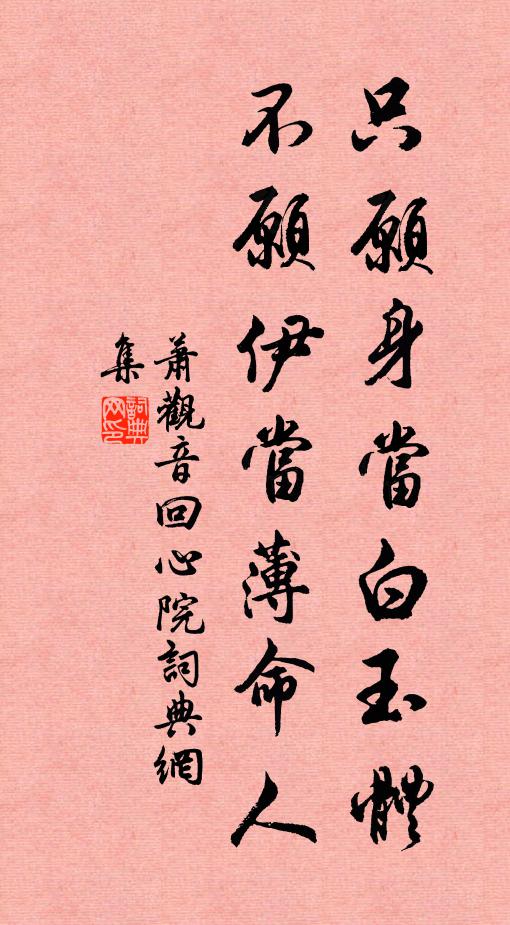 只願身當白玉體
不願伊當薄命人
蕭觀音回心院詞典網
集
詞典網印